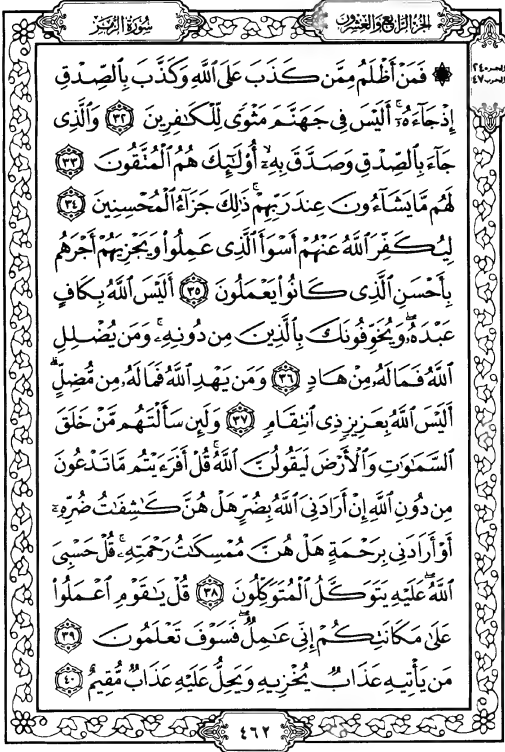 سُورَةُ الزُّمَرِ
الجُزْءُ الرَّابِعُ وَالعِشْرُونَ
الجزء ٢٤
الحزب ٤٧
۞ فَمَنْ أَظْلَمُ مِمَّن كَذَبَ عَلَى اللَّهِ وَكَذَّبَ بِالصِّدْقِ
إِذْ جَاءَهُۥٓ ۚ أَلَيْسَ فِى جَهَنَّمَ مَثْوًى لِّلْكَٰفِرِينَ ٣٢ وَالَّذِى
جَاءَ بِالصِّدْقِ وَصَدَّقَ بِهِۦٓ ۙ أُو۟لَٰٓئِكَ هُمُ الْمُتَّقُونَ ٣٣
لَهُم مَّا يَشَاءُونَ عِندَ رَبِّهِمْ ۚ ذَٰلِكَ جَزَاءُ الْمُحْسِنِينَ ٣٤
لِيُكَفِّرَ اللَّهُ عَنْهُمْ أَسْوَأَ الَّذِى عَمِلُوا۟ وَيَجْزِيَهُمْ أَجْرَهُم
بِأَحْسَنِ الَّذِى كَانُوا۟ يَعْمَلُونَ ٣٥ أَلَيْسَ اللَّهُ بِكَافٍ
عَبْدَهُۥ ۖ وَيُخَوِّفُونَكَ بِالَّذِينَ مِن دُونِهِۦ ۚ وَمَن يُضْلِلِ
اللَّهُ فَمَا لَهُۥ مِنْ هَادٍ ٣٦ وَمَن يَهْدِ اللَّهُ فَمَا لَهُۥ مِن مُّضِلٍّ ۗ
أَلَيْسَ اللَّهُ بِعَزِيزٍ ذِى انتِقَامٍ ٣٧ وَلَئِن سَأَلْتَهُم مَّنْ خَلَقَ
السَّمَٰوَٰتِ وَالْأَرْضَ لَيَقُولُنَّ اللَّهُ ۚ قُلْ أَفَرَءَيْتُم مَّا تَدْعُونَ
مِن دُونِ اللَّهِ إِنْ أَرَادَنِىَ اللَّهُ بِضُرٍّ هَلْ هُنَّ كَٰشِفَٰتُ ضُرِّهِۦٓ
أَوْ أَرَادَنِى بِرَحْمَةٍ هَلْ هُنَّ مُمْسِكَٰتُ رَحْمَتِهِۦ ۚ قُلْ حَسْبِىَ
اللَّهُ ۖ عَلَيْهِ يَتَوَكَّلُ الْمُتَوَكِّلُونَ ٣٨ قُلْ يَٰقَوْمِ اعْمَلُوا۟
عَلَىٰ مَكَانَتِكُمْ إِنِّى عَٰمِلٌ ۖ فَسَوْفَ تَعْلَمُونَ ٣٩
مَن يَأْتِيهِ عَذَابٌ يُخْزِيهِ وَيَحِلُّ عَلَيْهِ عَذَابٌ مُّقِيمٌ ٤٠
٤٦٢